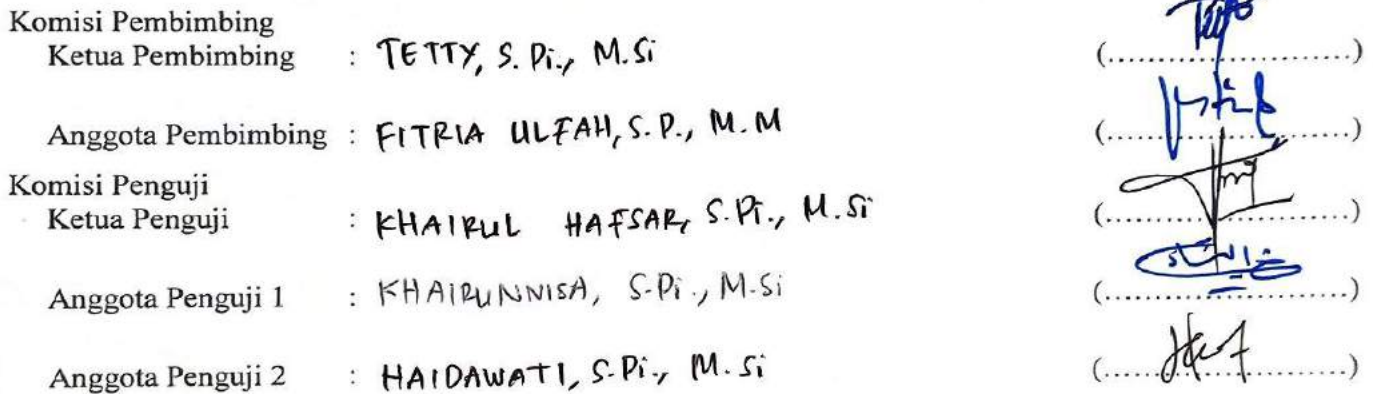 Komisi Pembimbing
Ketua Pembimbing : TETTY, S. Pi., M.Si (........................)
Anggota Pembimbing : FITRIA ULFAH, S.P., M.M (........................)
Komisi Penguji
Ketua Penguji : KHAIRUL HAFSAR, S.Pi., M.Si (........................)
Anggota Penguji 1 : KHAIRUNNISA, S.Pi., M.Si (........................)
Anggota Penguji 2 : HAIDAWATI, S.Pi., M.Si (........................)